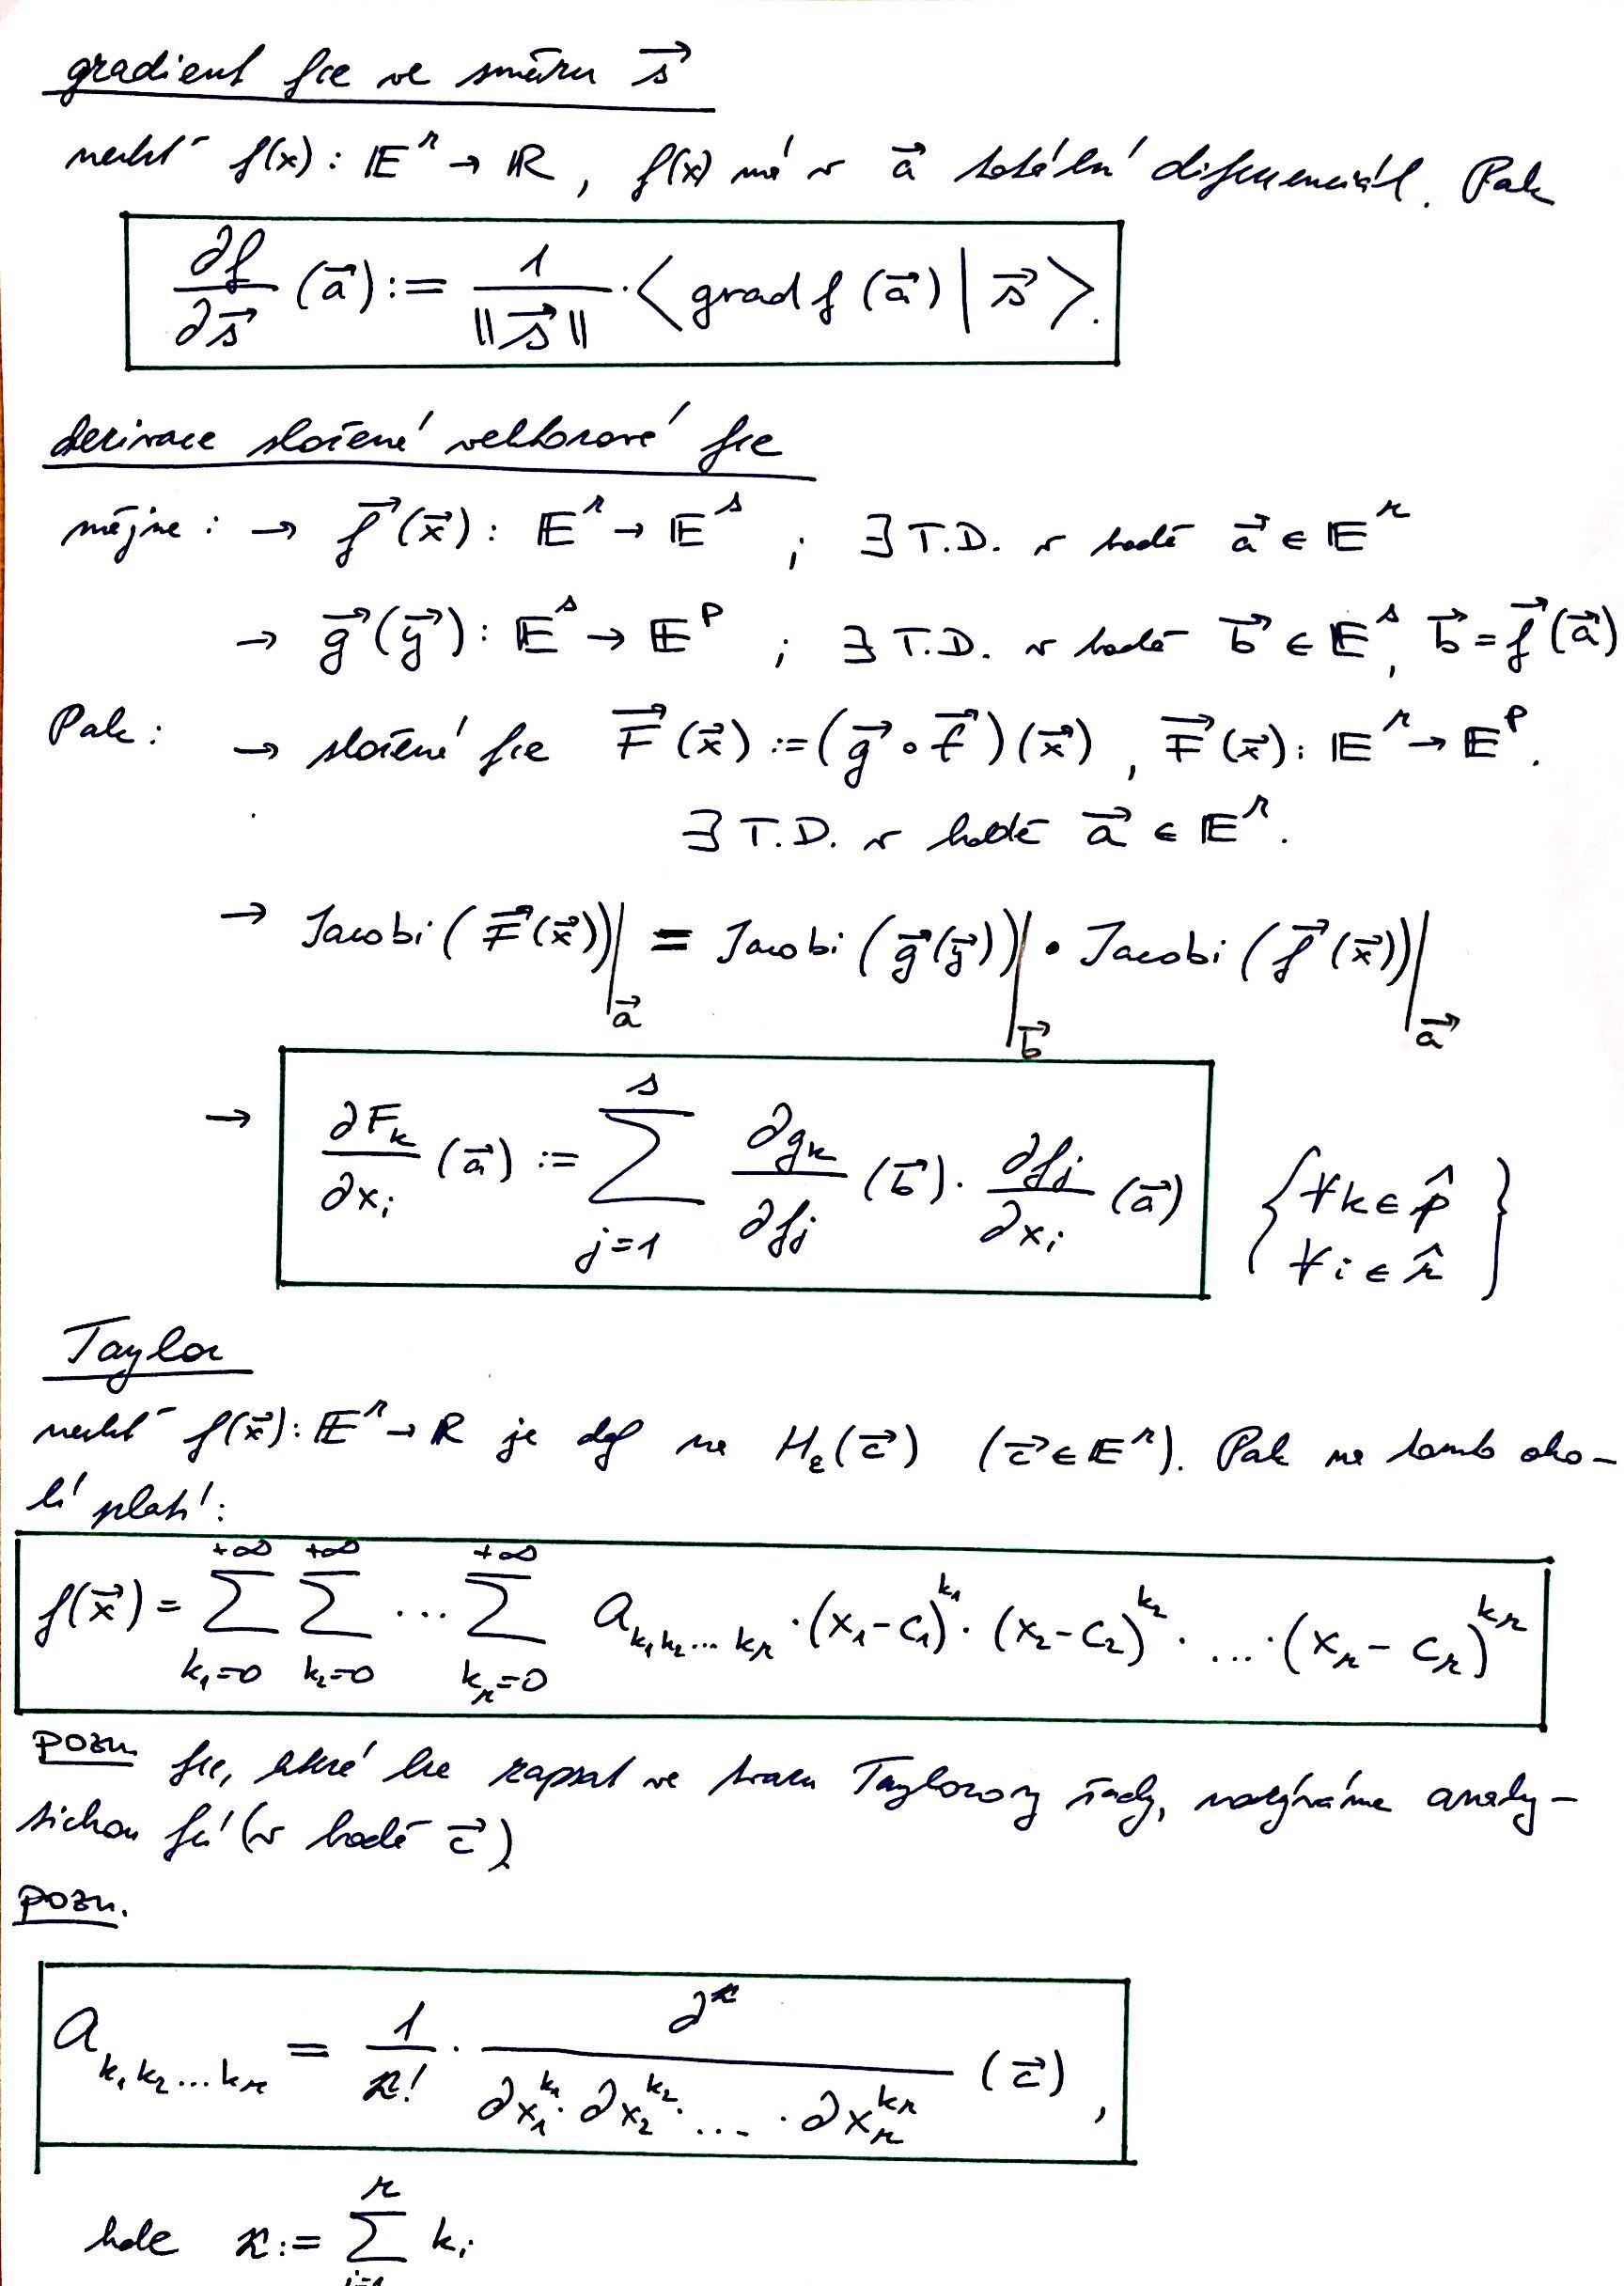 gradient fce ve směru $\vec{s}$
nechť $f(x): \mathbb{E}^r \to \mathbb{R}$, $f(x)$ má v $\vec{a}$ totální diferenciál. Pak
$\frac{\partial f}{\partial \vec{s}}(\vec{a}) := \frac{1}{\|\vec{s}\|} \cdot \langle \text{grad} f(\vec{a}) | \vec{s} \rangle.$
derivace složené vektorové fce
mějme: → $\vec{f}(\vec{x}): \mathbb{E}^r \to \mathbb{E}^s$ ; ∃ T.D. v bodě $\vec{a} \in \mathbb{E}^r$
→ $\vec{g}(\vec{y}): \mathbb{E}^s \to \mathbb{E}^p$ ; ∃ T.D. v bodě $\vec{b} \in \mathbb{E}^s$, $\vec{b} = \vec{f}(\vec{a})$
Pak: → složená fce $\vec{F}(\vec{x}) := (\vec{g} \circ \vec{f})(\vec{x})$, $\vec{F}(\vec{x}): \mathbb{E}^r \to \mathbb{E}^p$.
∃ T.D. v bodě $\vec{a} \in \mathbb{E}^r$.
→ $\text{Jacobi}(\vec{F}(\vec{x}))|_{\vec{a}} = \text{Jacobi}(\vec{g}(\vec{y}))|_{\vec{b}} \bullet \text{Jacobi}(\vec{f}(\vec{x}))|_{\vec{a}}$
→ $\frac{\partial F_k}{\partial x_i}(\vec{a}) := \sum_{j=1}^{s} \frac{\partial g_k}{\partial f_j}(\vec{b}) \cdot \frac{\partial f_j}{\partial x_i}(\vec{a})$ $\left\{ \begin{matrix} \forall k \in \hat{p} \\ \forall i \in \hat{r} \end{matrix} \right\}$
Taylor
nechť $f(\vec{x}): \mathbb{E}^r \to \mathbb{R}$ je def na $H_\varepsilon(\vec{c})$ $(\vec{c} \in \mathbb{E}^r)$. Pak na tomto oko-
lí platí:
$f(\vec{x}) = \sum_{k_1=0}^{+\infty} \sum_{k_2=0}^{+\infty} \cdots \sum_{k_r=0}^{+\infty} a_{k_1 k_2 \ldots k_r} \cdot (x_1 - c_1)^{k_1} \cdot (x_2 - c_2)^{k_2} \cdot \ldots \cdot (x_r - c_r)^{k_r}$
pozn. fce, které lze zapsat ve tvaru Taylorovy řady, nazýváme analy-
tickou fcí (v bodě $\vec{c}$)
pozn.
$a_{k_1 k_2 \ldots k_r} = \frac{1}{\varkappa!} \cdot \frac{\partial^\varkappa}{\partial x_1^{k_1} \cdot \partial x_2^{k_2} \cdot \ldots \cdot \partial x_r^{k_r}}(\vec{c})$,
kde $\varkappa := \sum_{i=1}^{r} k_i$